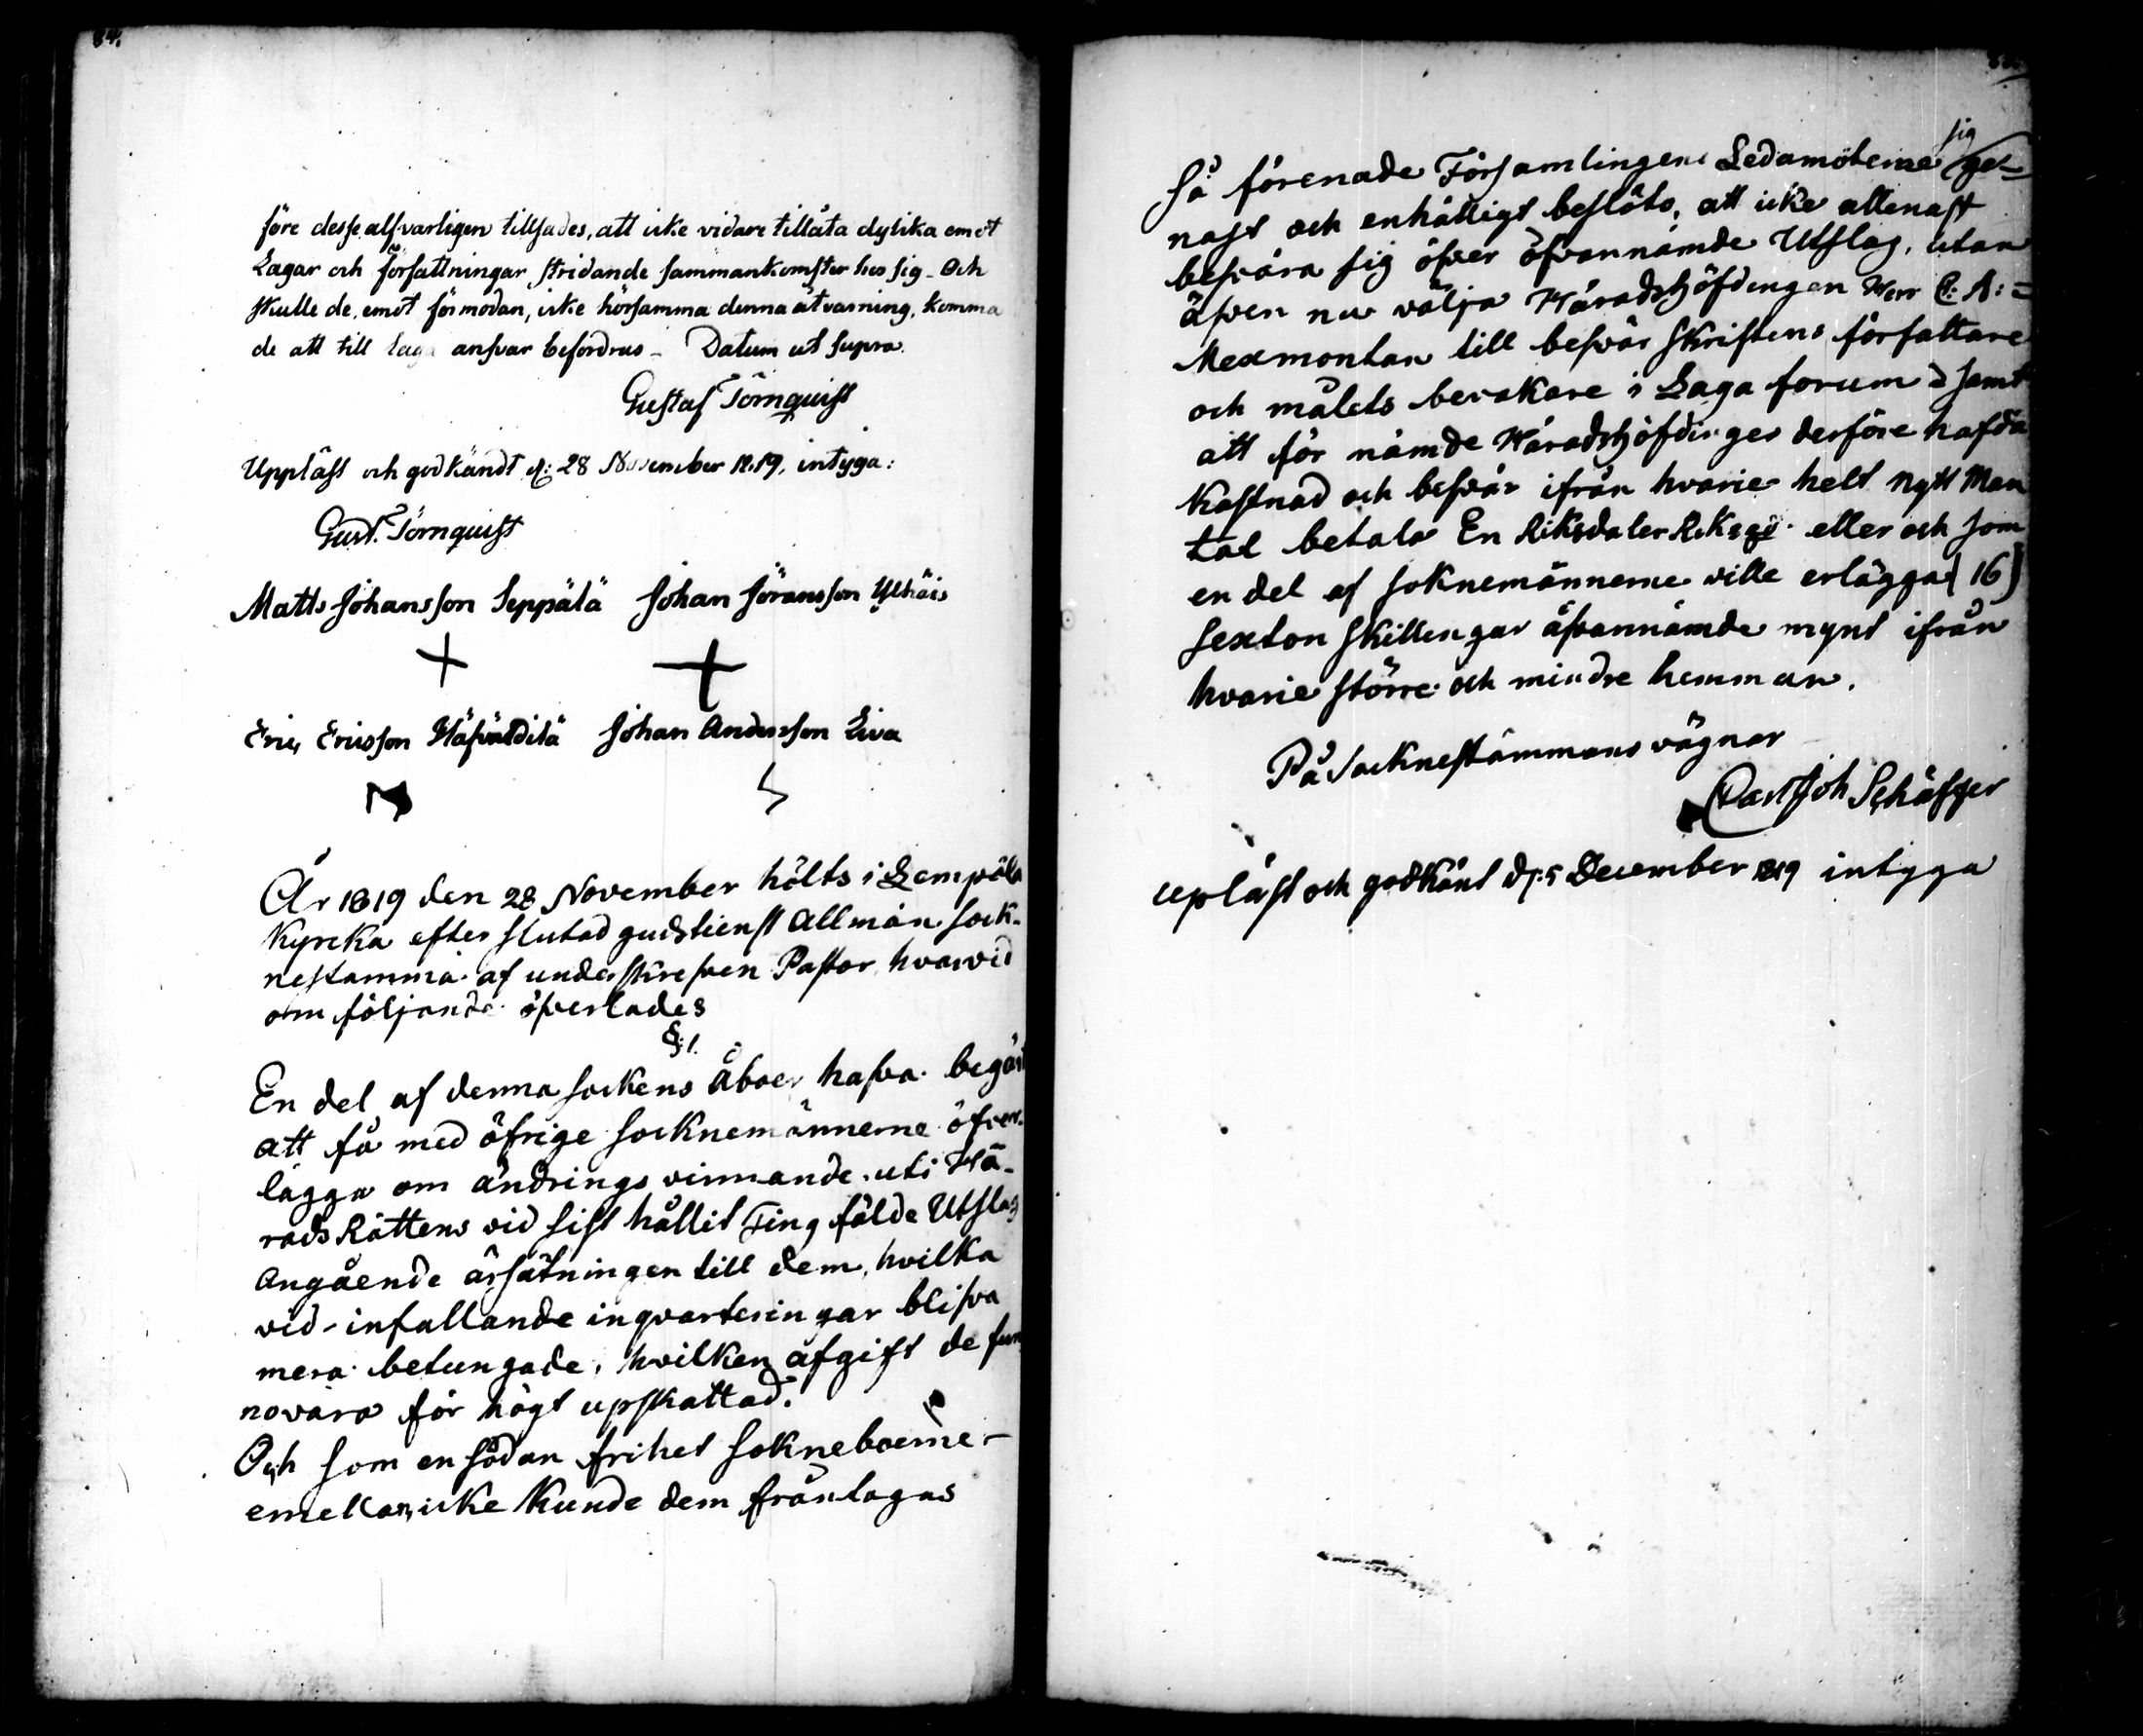 84.
före desse alfvarligen tillsades, att icke vidare tillåta dylika emot
Lagar och författningar stridande sammankomster hos sig. Och
skulle de, emot förmodan, icke hörsamma denna åtvarning, komma
de att till Laga ansvar befordras_ Datum ut supra.
Gustaf Törnquist
Uppläst och godkändt d: 28 November 1819, intyga:
Gust. Törnquist
Matts Johansson Seppälä Johan Jöransson Ylhäis
Eric Ericsson Johan Andersson Liva
År 1819 den 28 November hölts i Lempäla
Kyrcka efter slutad gudstienst Allmän sock-
nestämma af underskrefven Pastor hvarvid
om följande öfverlades
§:1.
En del af denna sockens Åboer hafva begärt
att få med öfrige socknemännerne öfver-
lägga om ändrings vinnande uti Hä-
rads Rättens vid sist hållit Ting fälde Utslag
Angående ärsätningen till dem, hvilka
vid infallande inqvarteringar blifva
mera betungade, hvilken afgift de fun
no vara för högt upskattad.
Och som en sådan frihet sokneboerne
emellan icke kunde dem fråntagas
så förenade Församlingens Ledamöterne sig ge-
nast och enhälligt beslöts, att icke allenast
besvära sig öfver öfvannämde Utslag, utan
äfven nu välja Häradshöfdingen Herr C: A: =
Mexmontan till besvär skriftens författare
och målets bevakare i Laga forum samt
att för nämde Häradshöfdinges derföre hafda
Kostnad och besvär ifrån hvarie helt nytt Man
tal betala En Riksdaler Riksgs eller och som
en del af soknemännerne ville erlägga (16)
sexton skillingar äfvannämde mynt ifrån
hvarie större och mindre hemman.
På Socknestämmans vägnar
Carl Joh Schäfger
upläst och godkänt d: 5 December 1819 intyga